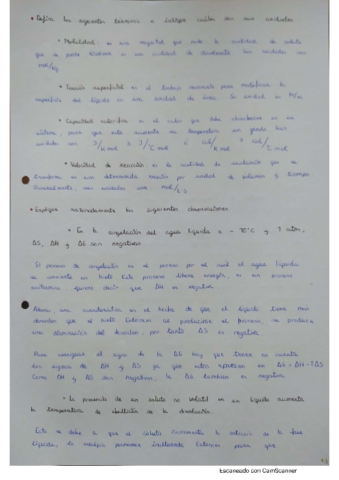 • Defina los siguientes términos e indique cuáles son sus unidades
• Molalidad: es una magnitud que mide la cantidad de soluto
que se puede disolver en una cantidad de disolvente. Sus unidades son
mol/kg
• Tensión superficial: es el trabajo necesario para modificar la
superficie del líquido en una unidad de área. Su unidad es N/m
• Capacidad calorífica: es el calor que debe absorber un
sistema, para que este aumente su temperatura un grado. Sus
unidades son J/K mol o J/°C mol o cal/K mol o cal/°C mol
• Velocidad de reacción: es la cantidad de sustancia que se
transforma en una determinada reacción por unidad de volumen y tiempo.
sus unidades son mol/L s
• Explique razonadamente las siguientes observaciones
• En la congelación del agua líquida a -10°C y 1 atm,
ΔS, ΔH y ΔG son negativos
El proceso de congelación es el proceso por el cual el agua líquida
se convierte en hielo. Este proceso libera energía, es un proceso
exotérmico, quiere decir que ΔH es negativo
Ahora, una el hecho de que el líquido tiene más
desorden que el hielo. Entonces al producirse el proceso, se produce
una disminución del desorden, por tanto ΔS es negativo
Para averiguar el signo de la ΔG hay que tener en cuenta
los signos de ΔH y ΔS ya que estos aparecen en ΔG = ΔH - TΔS
Como ΔH y ΔS son negativos, la ΔG también es negativa
• La presencia de un soluto no volátil en un líquido aumenta
la temperatura de ebullición de la disolución.
Esto se debe a que el soluto la entropía de la fase
líquida, la permanece Entonces para que
Escaneado con CamScanner